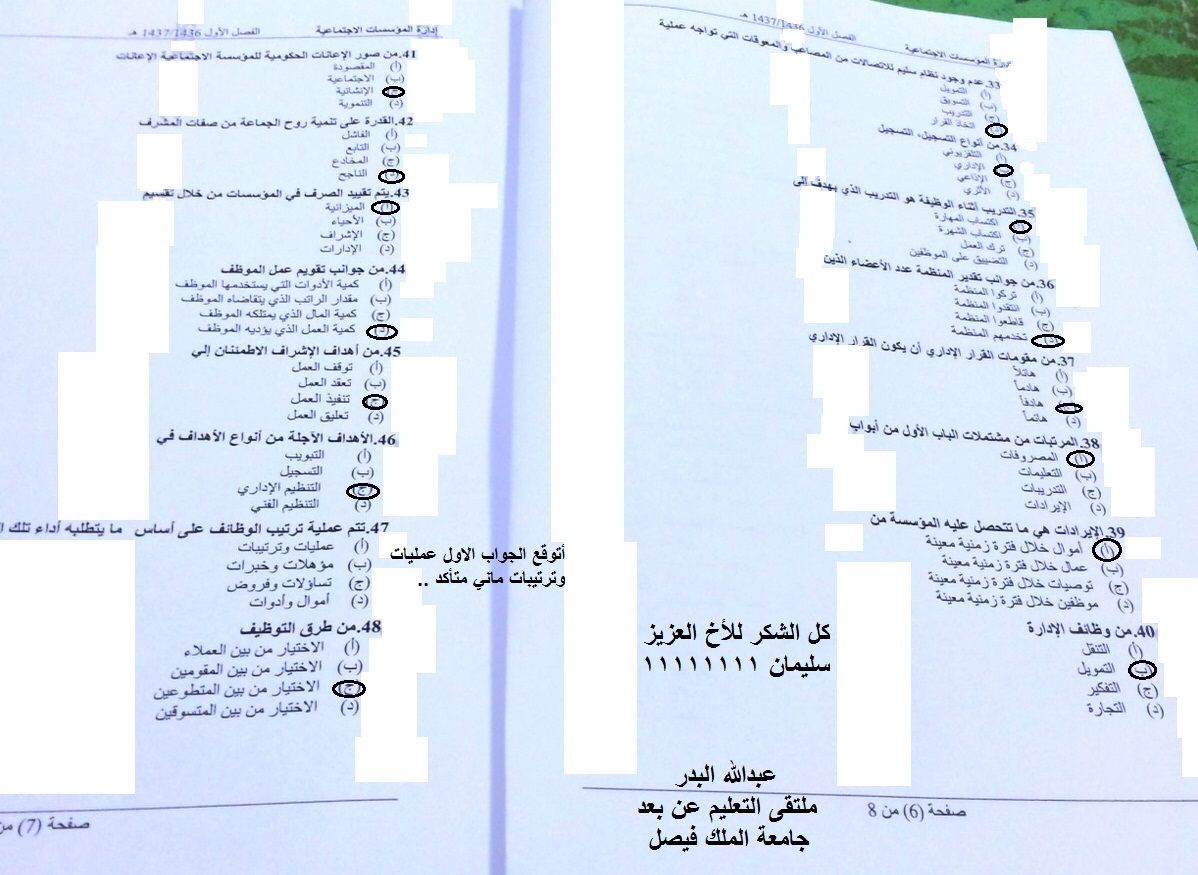 إدارة المؤسسات الاجتماعية الفصل الأول 1437/1436 هـ
33.عدم وجود نظام سليم للاتصالات من المصاعب والمعوقات التي تواجه عملية
أ) التمويل
ب) التسويق
ج) التدريب
د) اتخاذ القرار
34.من أنواع التسجيل، التسجيل
أ) التلفزيوني
ب) الإداري
ج) الإذاعي
د) الأثري
35.التدريب أثناء الوظيفة هو التدريب الذي يهدف إلى
أ) اكتساب المهارة
ب) اكتساب الشهرة
ج) ترك العمل
د) التضييق على الموظفين
36.من جوانب تقدير المنظمة عدد الأعضاء الذين
أ) تركوا المنظمة
ب) انتقدوا المنظمة
ج) قاطعوا المنظمة
د) تخدمهم المنظمة
37.من مقومات القرار الإداري أن يكون القرار الإداري
أ) هائلاً
ب) هادماً
ج) هادفاً
د) هائماً
38.المرتبات من مشتملات الباب الأول من أبواب
أ) المصروفات
ب) التعليمات
ج) التدريبات
د) الإيرادات
39.الإيرادات هي ما تتحصل عليه المؤسسة من
أ) أموال خلال فترة زمنية معينة
ب) عمال خلال فترة زمنية معينة
ج) توصيات خلال فترة زمنية معينة
د) موظفين خلال فترة زمنية معينة
40.من وظائف الإدارة
أ) التنقل
ب) التمويل
ج) التفكير
د) التجارة
كل الشكر للأخ العزيز
سليمان ١١١١١١١١
عبدالله البدر
ملتقى التعليم عن بعد
جامعة الملك فيصل
صفحة (6) من 8
إدارة المؤسسات الاجتماعية الفصل الأول 1437/1436 هـ
41.من صور الإعانات الحكومية للمؤسسة الاجتماعية الإعانات
أ) المقصودة
ب) الاجتماعية
ج) الإنشائية
د) التنموية
42.القدرة على تنمية روح الجماعة من صفات المشرف
أ) الفاشل
ب) التابع
ج) المخادع
د) الناجح
43.يتم تقييد الصرف في المؤسسات من خلال تقسيم
أ) الميزانية
ب) الأحياء
ج) الإشراف
د) الإدارات
44.من جوانب تقويم عمل الموظف
أ) كمية الأدوات التي يستخدمها الموظف
ب) مقدار الراتب الذي يتقاضاه الموظف
ج) كمية المال الذي يمتلكه الموظف
د) كمية العمل الذي يؤديه الموظف
45.من أهداف الإشراف الاطمئنان إلي
أ) توقف العمل
ب) تعقد العمل
ج) تنفيذ العمل
د) تعليق العمل
46.الأهداف الآجلة من أنواع الأهداف في
أ) التبويب
ب) التسجيل
ج) التنظيم الإداري
د) التنظيم الفني
47.تتم عملية ترتيب الوظائف على أساس ما يتطلبه أداء تلك
أ) عمليات وترتيبات
ب) مؤهلات وخبرات
ج) تساؤلات وفروض
د) أموال وأدوات
أتوقع الجواب الاول عمليات
وترتيبات ماني متأكد ..
48.من طرق التوظيف
أ) الاختيار من بين العملاء
ب) الاختيار من بين المقومين
ج) الاختيار من بين المتطوعين
د) الاختيار من بين المتسوقين
صفحة (7) من